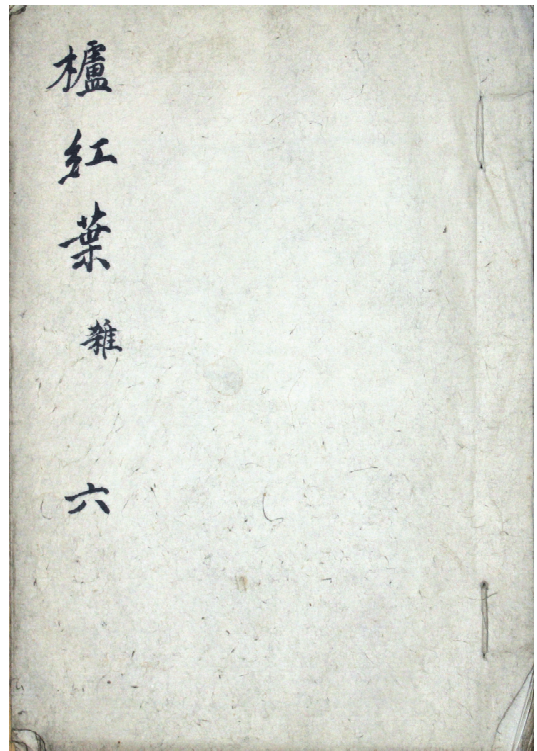 櫨紅葉 雑 六